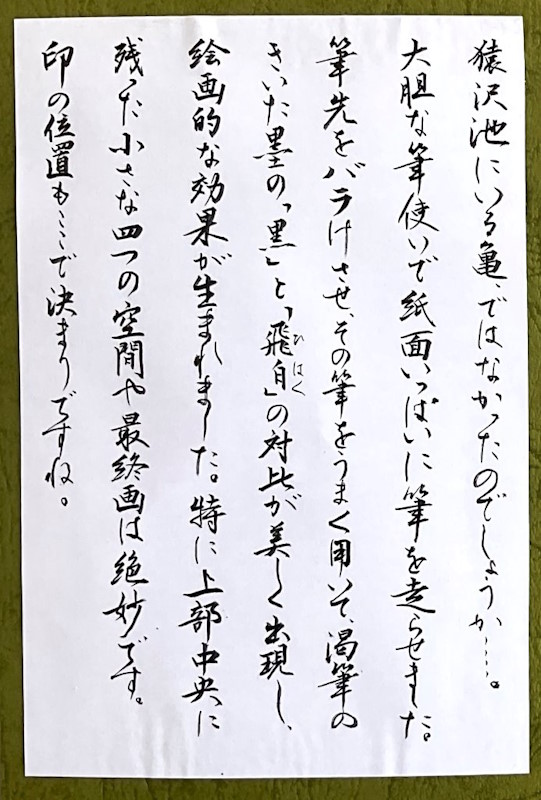 猿沢池にいる亀、ではなかったのでしょうか……。
大胆な筆使いで紙面いっぱいに筆を走らせました。
筆先をバラけさせ、その筆をうまく用いて、渇筆の
きいた墨の「黒」と「飛白」の対比が美しく出現し、
ひはく
絵画的な効果が生まれました。特に上部中央に
残った小さな四つの空間や最終画は絶妙です。
印の位置もここで決まりですね。